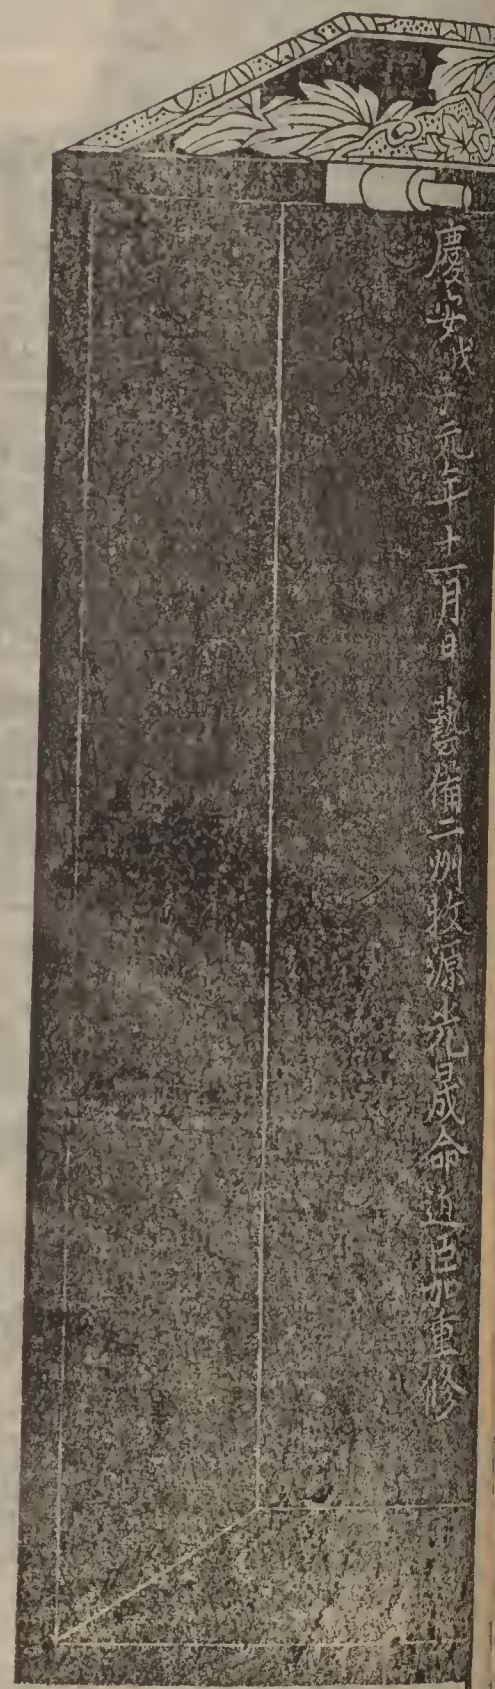 慶安戊子元年十一月日藝備二州牧源光晟命近臣加重修